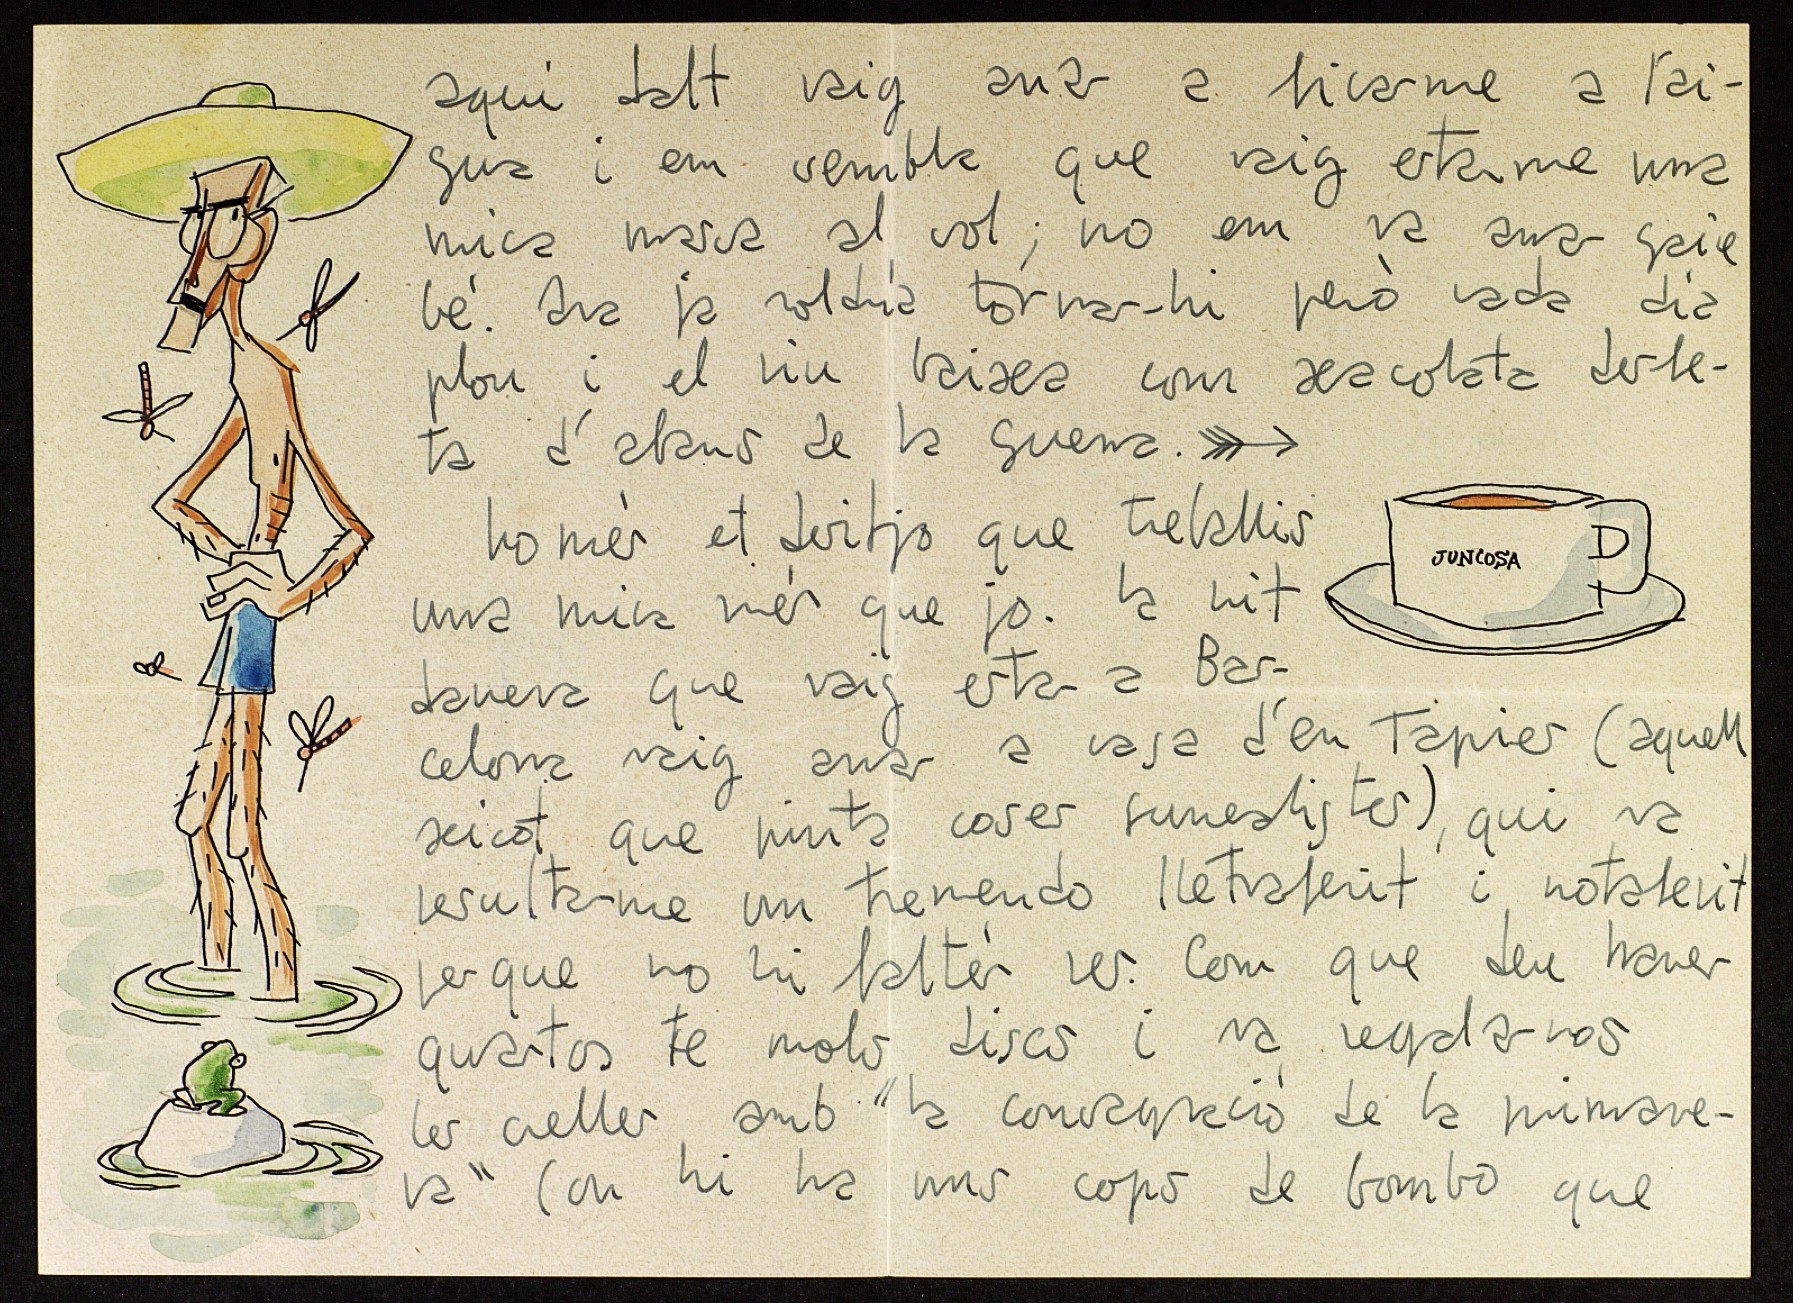 aqui dalt vaig anar a ficar-me a l'ai-
gua i em sembla que vaig estar-me una
mica massa al sol; no em va anar gaire
bé. Ara ja voldria tornar-hi però cada dia
plou i el riu baixa com xacolata desfe-
ta d'abans de la guerra.
només et desitjo que treballis
una mica més que jo. la nit
darrera que vaig estar a Bar-
celona vaig anar a casa d'en Tàpies (aquell
xicot que pinta coses surrealistes), qui va
resultar-me un tremendo lletraferit i notaferit
perque no hi faltés res. Com que deu haver
quartos te molts discs i va regalar-nos
les orelles amb "la consagració de la primave-
ra" (on hi ha uns cops de bombo que
JUNCOSA